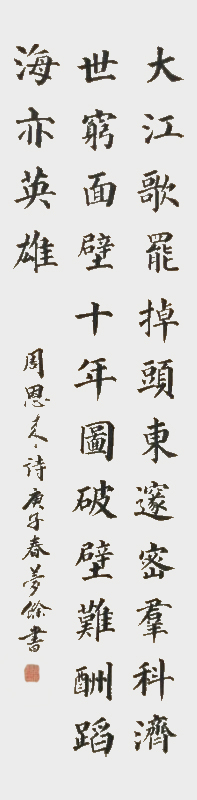 大江歌罷掉頭東邃密羣科濟
世窮面壁十年圖破壁難酬蹈
海亦英雄
周恩来诗庚子春夢餘書